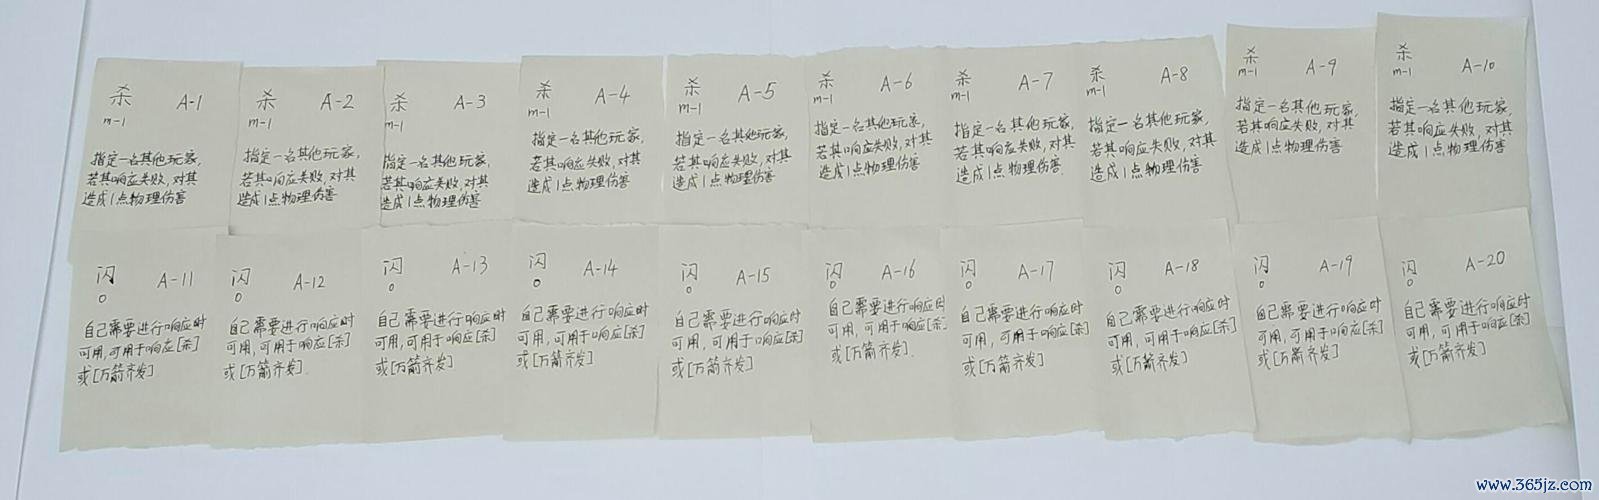 杀 A-1
m-1
指定一名其他玩家,
若其响应失败,对其
造成1点物理伤害
杀 A-2
m-1
指定一名其他玩家,
若其响应失败,对其
造成1点物理伤害
杀 A-3
m-1
指定一名其他玩家,
若其响应失败,对其
造成1点物理伤害
杀 A-4
m-1
指定一名其他玩家,
若其响应失败,对其
造成1点物理伤害
杀 A-5
m-1
指定一名其他玩家,
若其响应失败,对其
造成1点物理伤害
杀 A-6
m-1
指定一名其他玩家,
若其响应失败,对其
造成1点物理伤害
杀 A-7
m-1
指定一名其他玩家,
若其响应失败,对其
造成1点物理伤害.
杀 A-8
m-1
指定一名其他玩家,
若其响应失败,对其
造成1点物理伤害
杀 A-9
m-1
指定一名其他玩家,
若其响应失败,对其
造成1点物理伤害
杀 A-10
m-1
指定一名其他玩家,
若其响应失败,对其
造成1点物理伤害
闪 A-11
0
自己需要进行响应时
可用,可用于响应[杀]
或[万箭齐发]
闪 A-12
0
自己需要进行响应时
可用,可用于响应[杀]
或[万箭齐发]
闪 A-13
0
自己需要进行响应时
可用,可用于响应[杀]
或[万箭齐发]
闪 A-14
0
自己需要进行响应时
可用,可用于响应[杀]
或[万箭齐发]
闪 A-15
0
自己需要进行响应时
可用,可用于响应[杀]
或[万箭齐发]
闪 A-16
0
自己需要进行响应时
可用,可用于响应[杀]
或[万箭齐发].
闪 A-17
0
自己需要进行响应时
可用,可用于响应[杀]
或[万箭齐发]
闪 A-18
0
自己需要进行响应时
可用,可用于响应[杀]
或[万箭齐发]
闪 A-19
0
自己需要进行响应时
可用,可用于响应[杀]
或[万箭齐发]
闪 A-20
0
自己需要进行响应时
可用,可用于响应[杀]
或[万箭齐发]
www.365jz.com